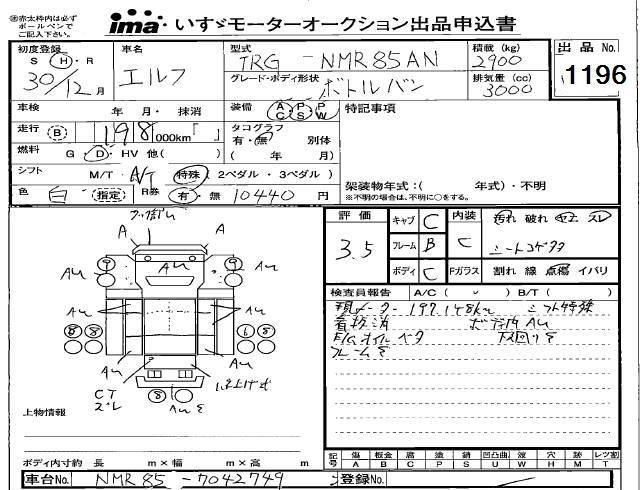 ㊟赤太枠内は必ずボールペンでご記入下さい。
ima・いすゞモーターオークション出品申込書
初度登録 S・H・R 30/12月
車名 エルフ
型式 TRG-NMR85AN
積載(kg) 2900
出品No. 1196
グレード・ボディ形状 ボトルバン
排気量(cc) 3000
車検 年 月・抹消
装備 AC PS PW
特記事項
走行 B 198 000km「 」
タコグラフ 有・無 別体 ( 年 月)
燃料 G・D・HV 他( )
シフト M/T・A/T 特殊(2ペダル・3ペダル)
架装物年式:( 年式)・不明
※不明の場合は、不明に○をする。
色 白 (指定) R券 有・無 10440円
評価 3.5
キャブ C
内装 C
汚れ 破れ ヤニ スレ
シートコゲ
フレーム B
ボディ C
Fガラス 割れ 線 点傷 イバリ
フック
A A
AU AU
AU AU
8 8 6 8
AU AU
CT ズレ
8 AU
上物情報
検査員報告 A/C( ) B/T( )
現メーター 197,148km シフト特殊
看板消 ボディ内AU
E/Gオイルベタ 下回り
フレーム
ボディ内寸約 長 m×幅 m×高 m
記号 傷A 板金B 腐C 塗P 錆S 凹凸曲U 波W 穴H 痕M レツ割T
車台No. NMR85-7042749
登録No.